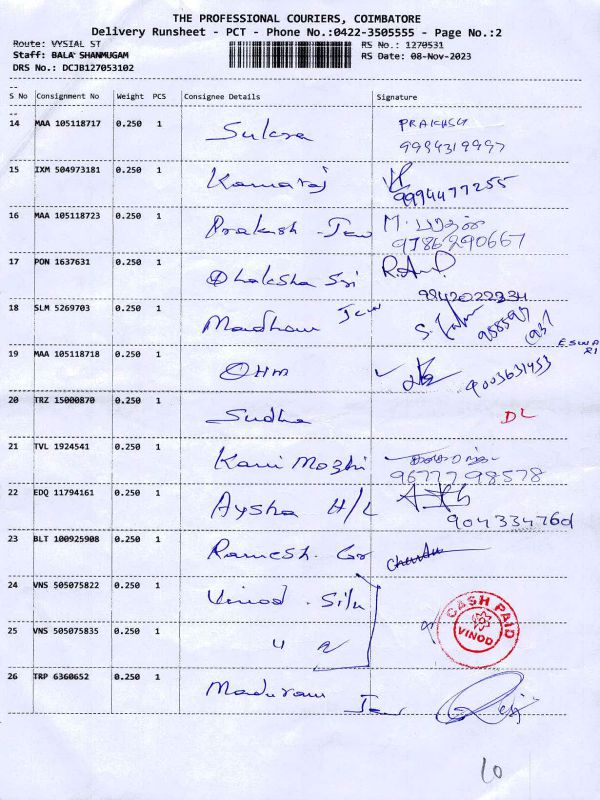 THE PROFESSIONAL COURIERS, COIMBATORE
Delivery Runsheet - PCT - Phone No.:0422-3505555 - Page No.:2
Route: VYSIAL ST RS No.: 1270531
Staff: BALA SHANMUGAM RS Date: 08-Nov-2023
DRS No.: DCJB127053102
--
S No Consignment No Weight PCS Consignee Details Signature
--
14 MAA 105118717 0.250 1 Sukra
15 IXM 504973181 0.250 1 Kamaraj
9994477255
16 MAA 105118723 0.250 1 Prakash - Jew M.
9786290667
17 PON 1637631 0.250 1 Dhaksha Sri
9842022834
18 SLM 5269703 0.250 1 Madhom Jew S.
19 MAA 105118718 0.250 1 OHM 9003631453
20 TRZ 15000870 0.250 1 Sudha DL
21 TVL 1924541 0.250 1 Kani Mozhi
9677798578
22 EDQ 11794161 0.250 1 Aysha H/L
904334760
23 BLT 100925908 0.250 1 Ramesh. Gr
24 VNS 505075822 0.250 1 Vinod - Silk
CASH PAID
VINOD
25 VNS 505075835 0.250 1
26 TRP 6360652 0.250 1 Maduram Jew
10